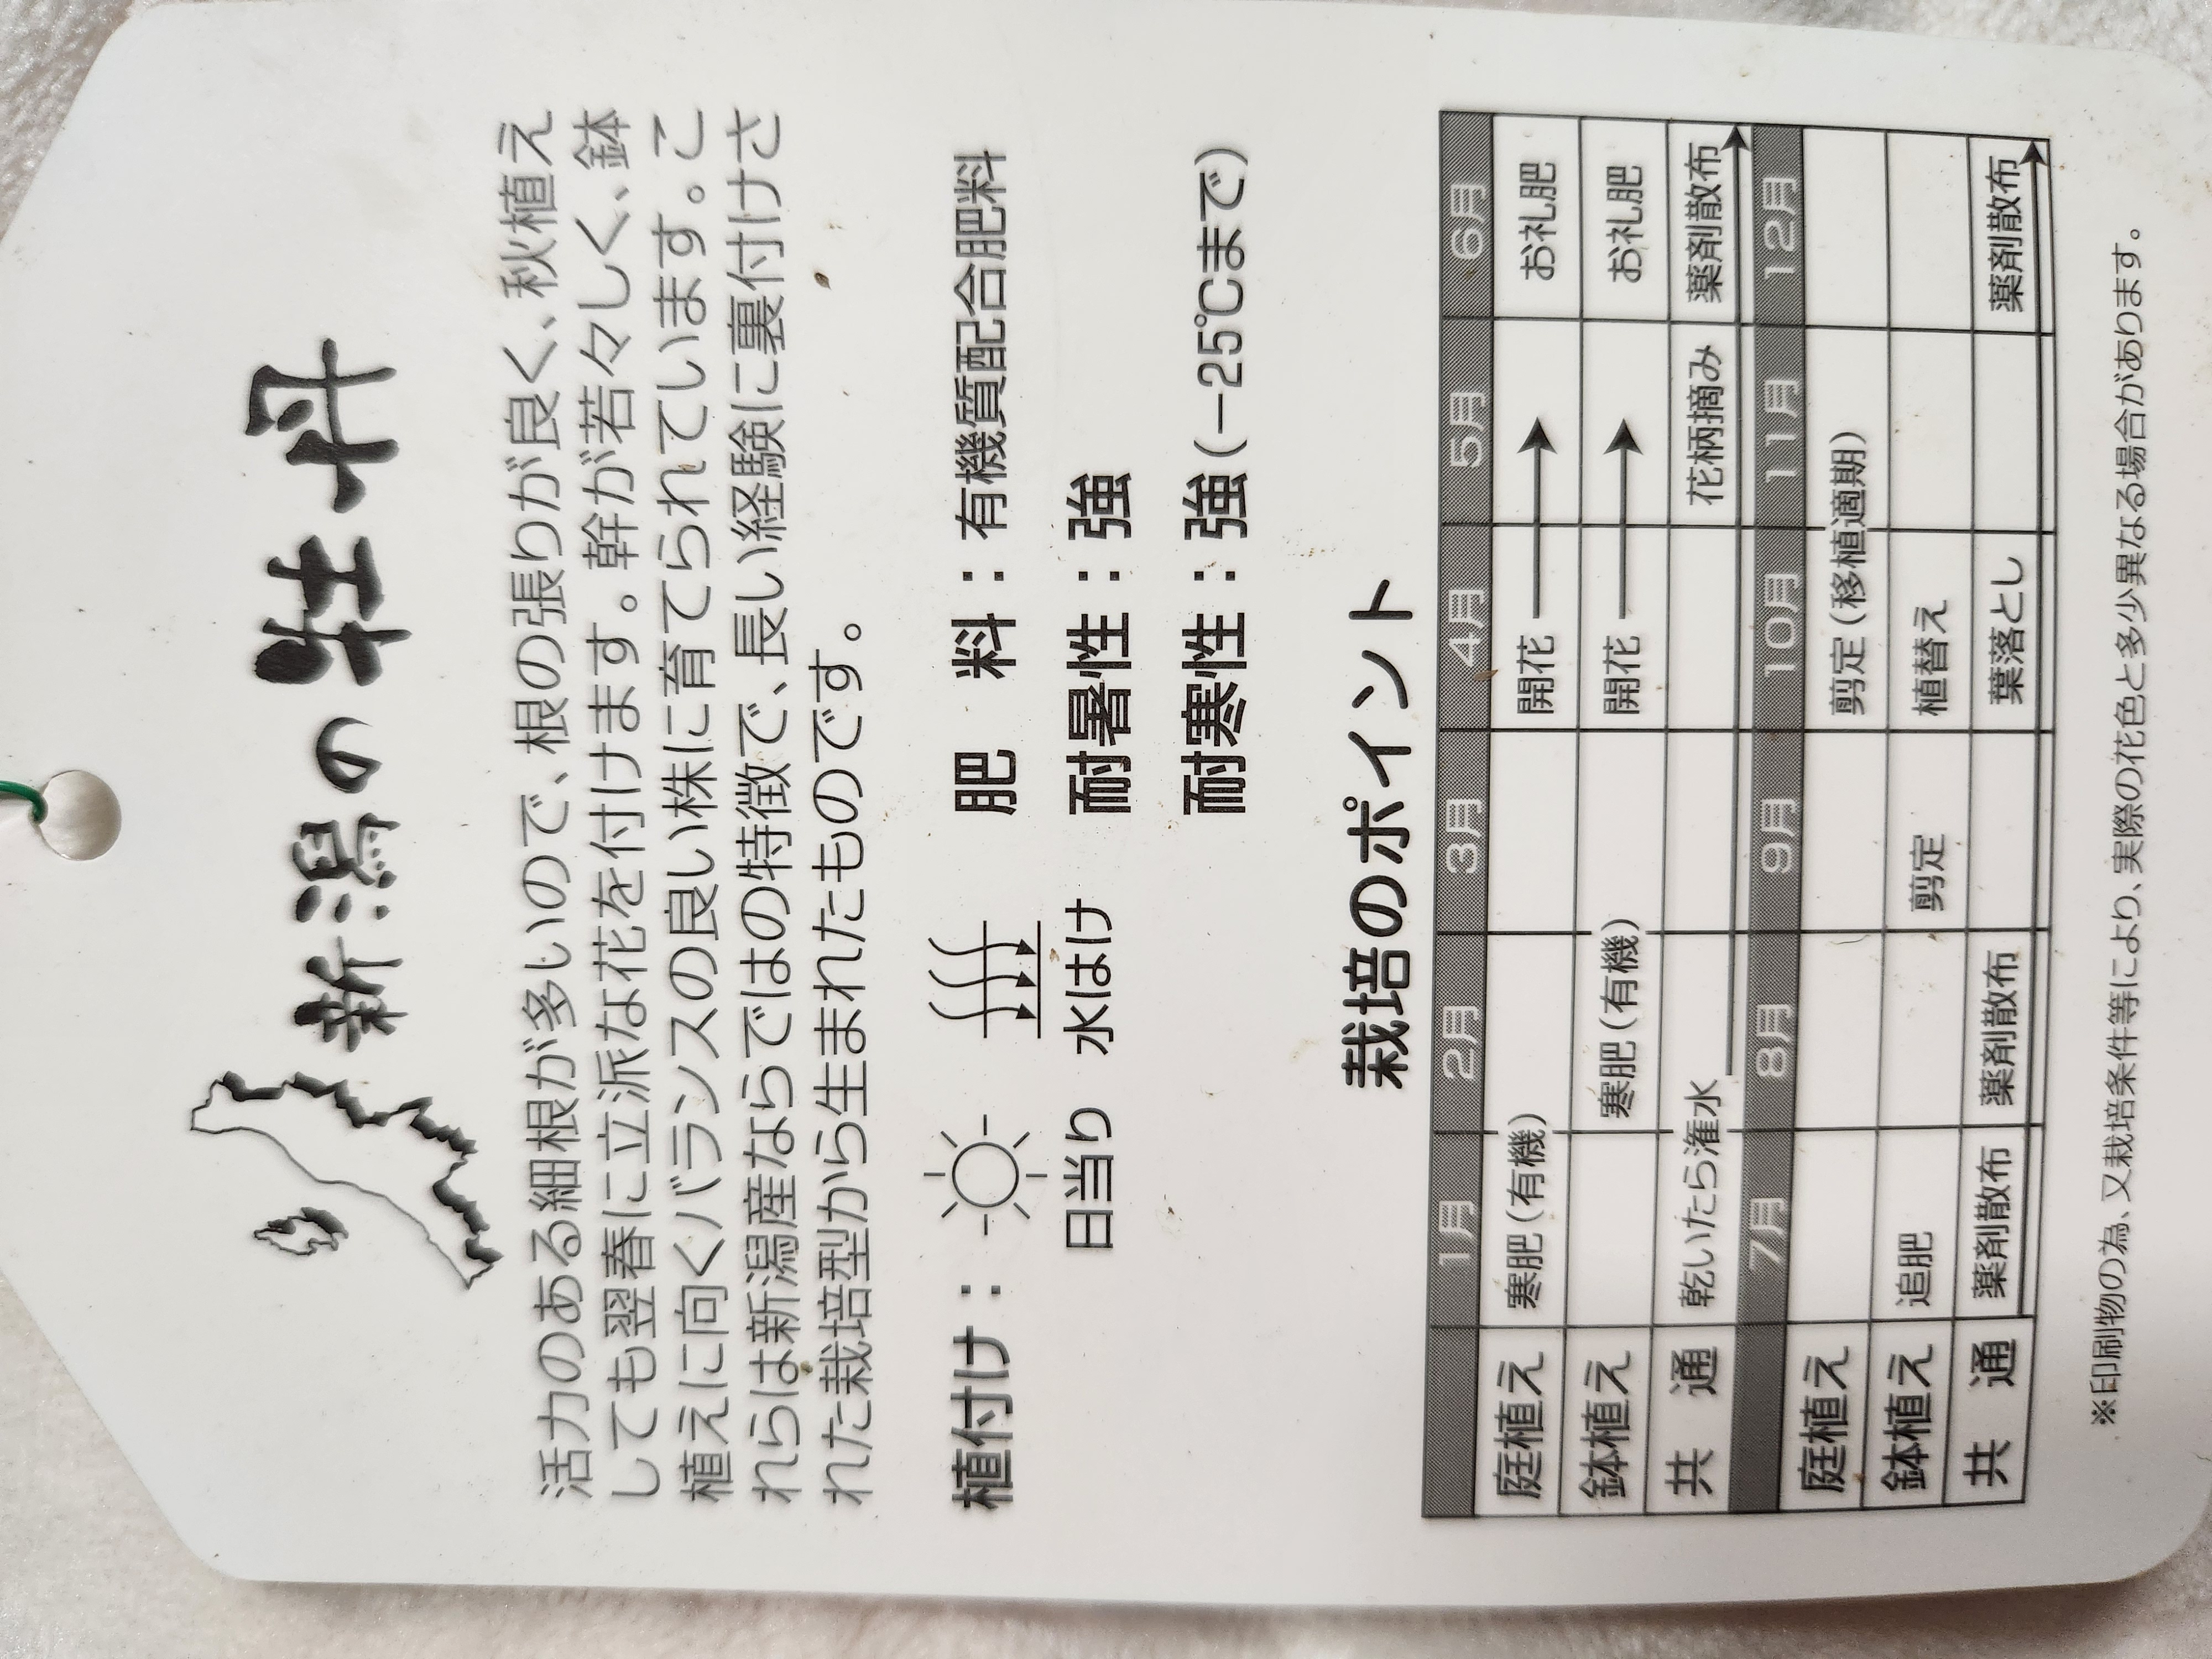 新潟の牡丹
活力のある細根が多いので、根の張りが良く、秋植え
しても翌春に立派な花を付けます。幹が若々しく、鉢
植えに向くバランスの良い株に育てられています。こ
れらは新潟産ならではの特徴で、長い経験に裏付けさ
れた栽培型から生まれたものです。
植付け： 肥　料：有機質配合肥料
日当り 水はけ 耐暑性：強
耐寒性：強（－25℃まで）
栽培のポイント
1月 2月 3月 4月 5月 6月
庭植え 寒肥（有機） 開花 お礼肥
鉢植え 寒肥（有機） 開花 お礼肥
共　通 乾いたら潅水 花柄摘み 薬剤散布
7月 8月 9月 10月 11月 12月
庭植え 剪定（移植適期）
鉢植え 追肥 剪定 植替え
共　通 薬剤散布 薬剤散布 葉落とし 薬剤散布
※印刷物の為、又栽培条件等により、実際の花色と多少異なる場合があります。